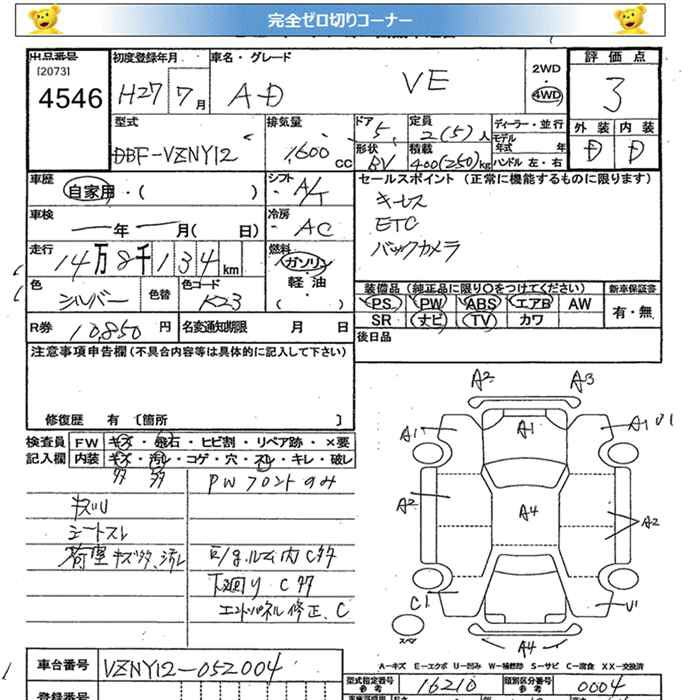 完全ゼロ切りコーナー
出品番号 [2073] 4546
初度登録年月 H27 7月
車名・グレード AD VE
2WD ・ 4WD
評価点 3
外装 D 内装 D
型式 DBF-VZNY12
排気量 1,600 cc
ドア 5
形状 BV
定員 2(5)人
積載 400(250)kg
ディーラー・並行
モデル年式 年
ハンドル 左・右
車歴 自家用・( )
シフト A/T
セールスポイント (正常に機能するものに限ります)
キーレス
ETC
バックカメラ
車検 ー年ー月( 日)
冷房 AC
走行 14万8千134km
燃料 ガソリン ・ 軽油 ・ ( )
色 シルバー 色替 色コード K23
装備品 (純正品に限り〇をつけてください)
PS PW ABS エアB AW
SR ナビ TV カワ
新車保証書 有・無
R券 10,850円 名変通知期限 月 日
後日品
注意事項申告欄 (不具合内容等は具体的に記入して下さい)
修復歴 有 〔箇所 〕
検査員記入欄 FW キズ・飛石・ヒビ割・リペア跡・×要
内装 キズ・汚レ・コゲ・穴・スレ・キレ・破レ
多 多
PWフロントのみ
キズU
シートスレ
荷室キズ多、汚れ
E/gルーム内C多
下廻りC多
エンドパネル修正、C
A2 A3
A1 A1 A1 U1
A2 A4 A2
C1 U1
スペア
A4
A-キズ E-エクボ U-凹み W-補修跡 S-サビ C-腐食 XX-交換済
車台番号 VZNY12-052004
型式指定番号 参考 16210 類別区分番号 参考 0004
登録番号